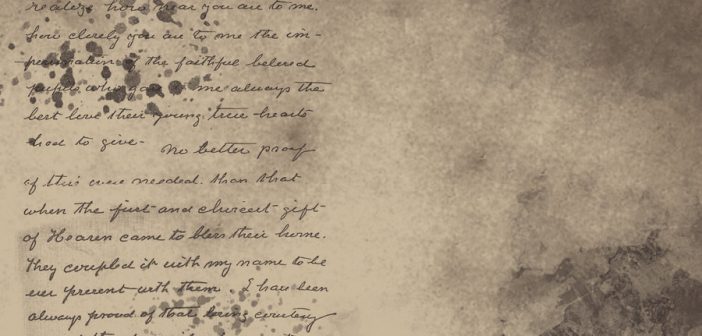 realize how near you are to me.
how closely you are to me the im-
personation of the faithful beloved
pupils who gave me always the
best love their young true hearts
had to give. no better proof
of this was needed. than that
when the first and choicest gift
of Heaven came to bless their home.
They coupled it with my name to be
ever present with them. I have been
always proud of that loving courtesy